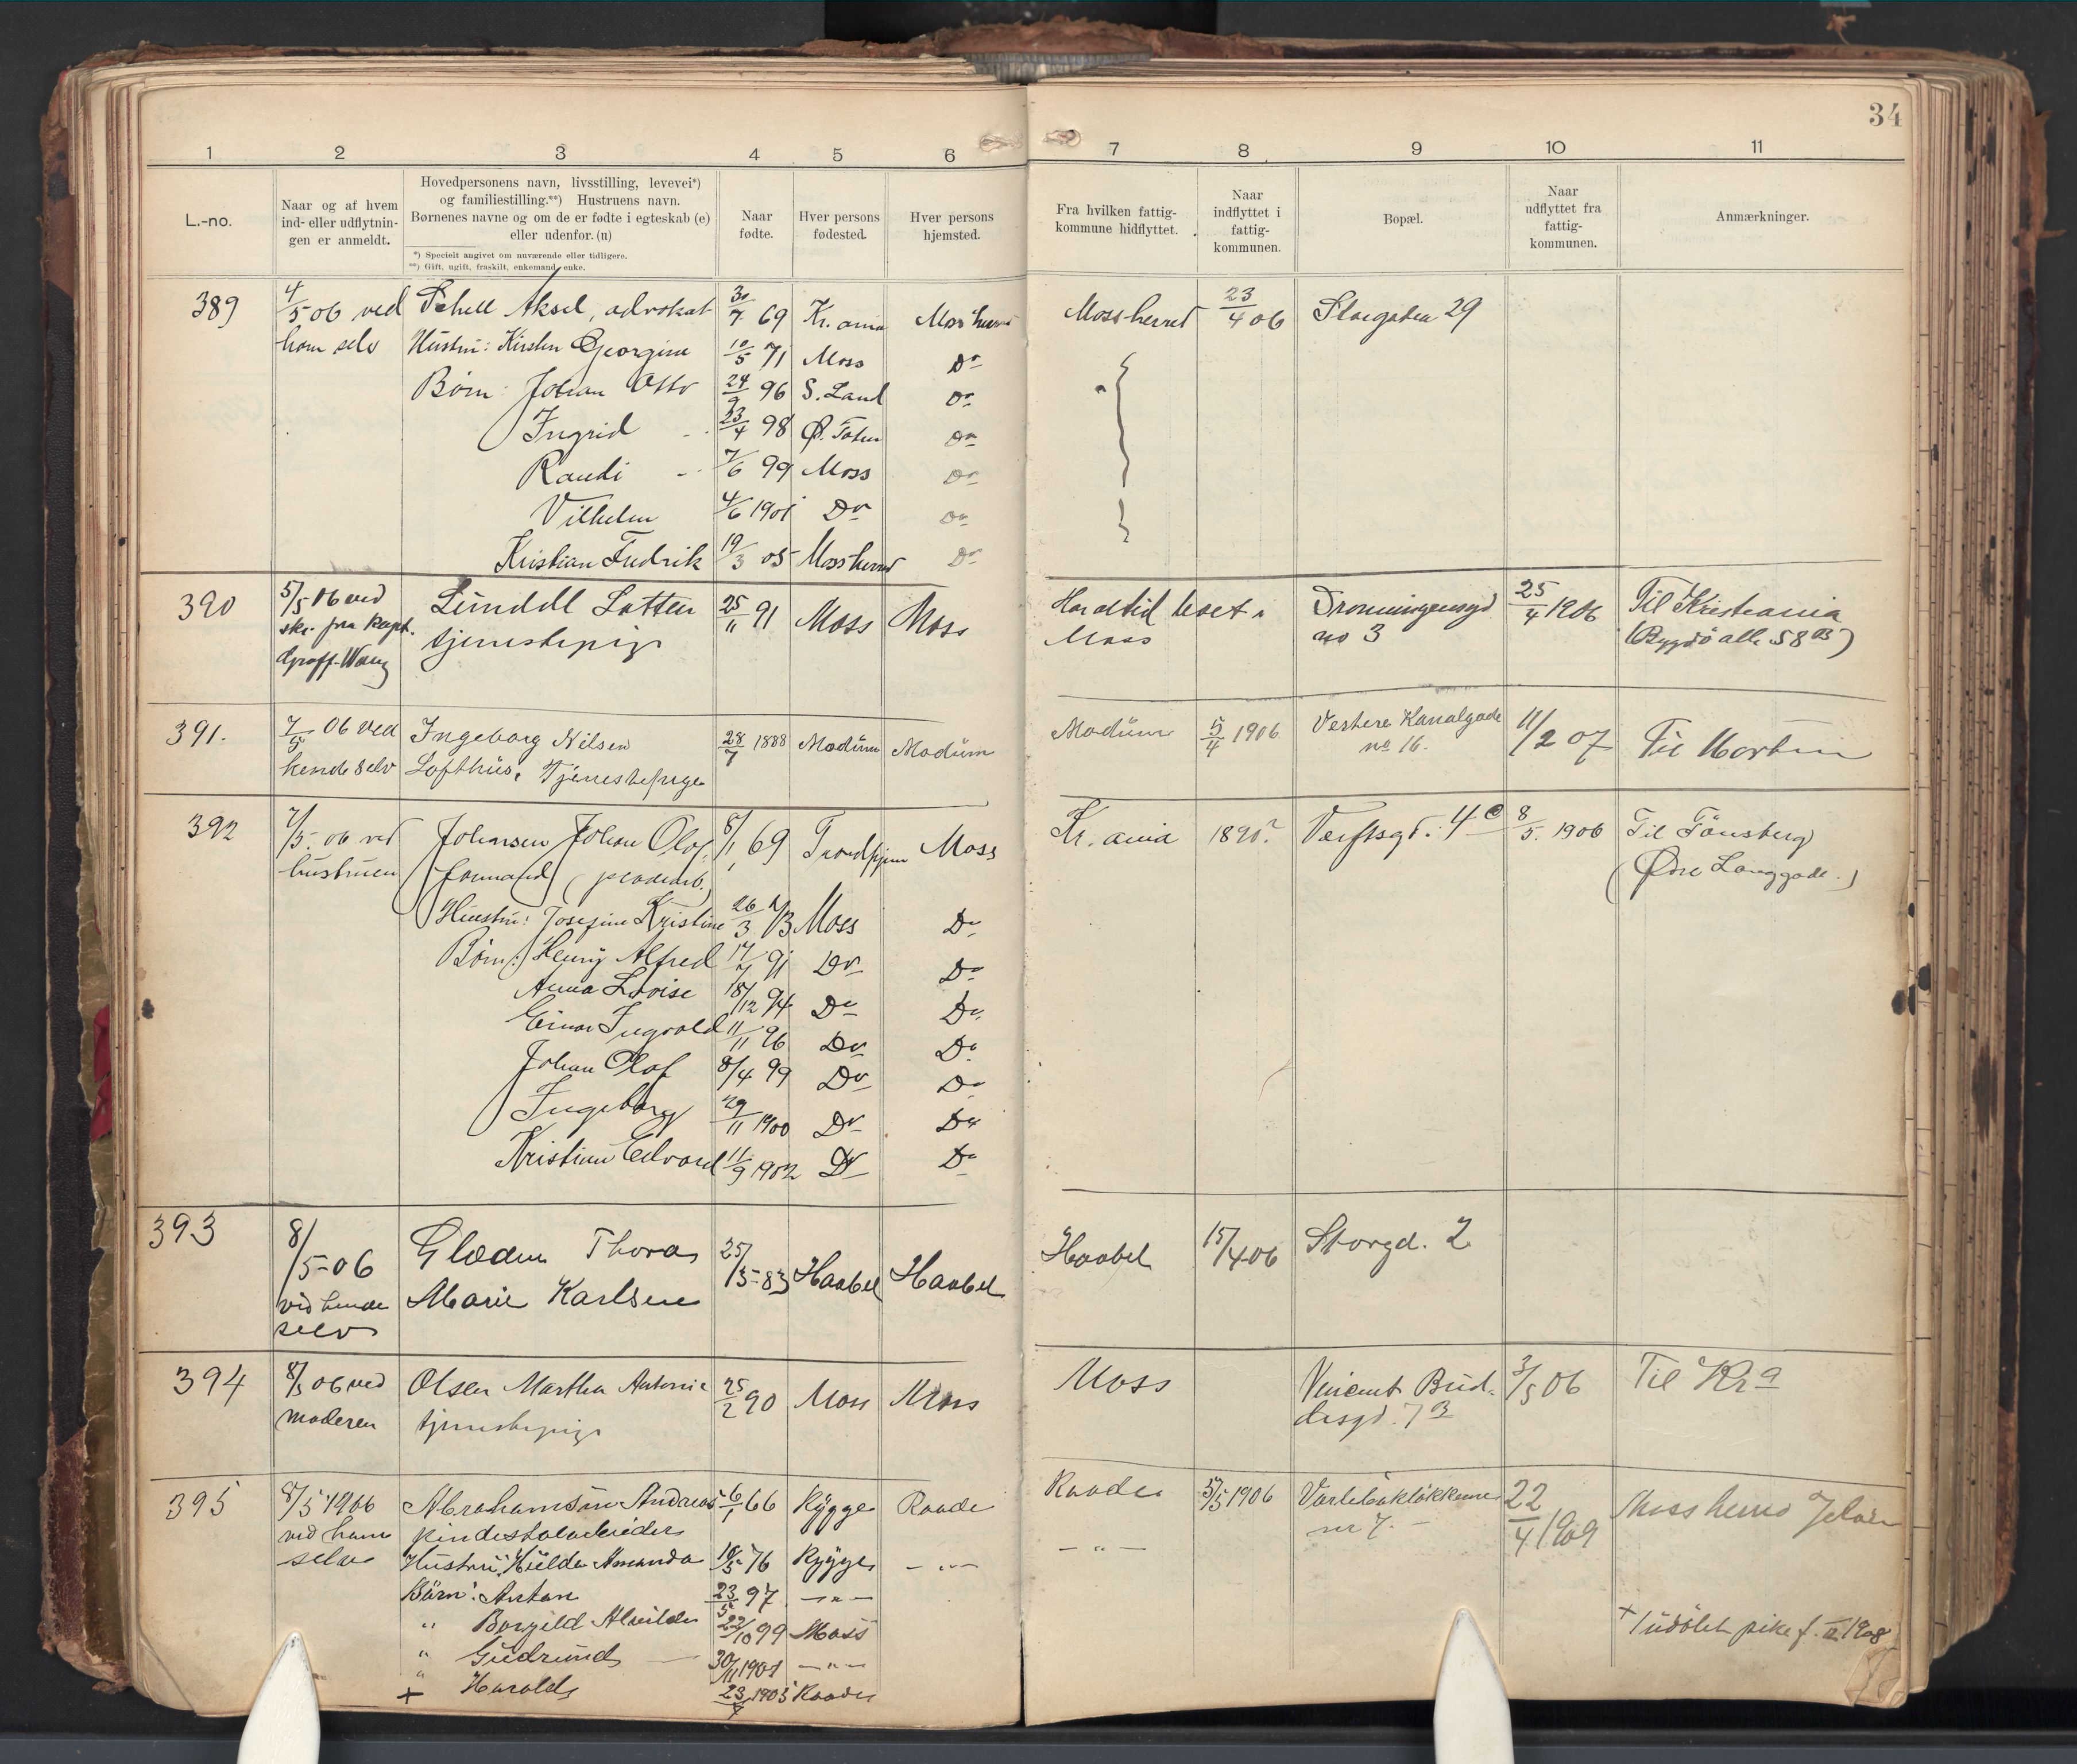 34
1 2 3 4 5 6 7 8 9 10 11
L.-no.
Naar og af hvem
ind- eller udflytnin-
gen er anmeldt.
Hovedpersonens navn, livsstilling, levevei*)
og familiestilling.**) Hustruens navn.
Børnenes navne og om de er fødte i egteskab (e)
eller udenfor. (u)
*) Specielt angivet om nuværende eller tidligere.
**) Gift, ugift, fraskilt, enkemand, enke.
Naar
fødte.
Hver persons
fødested.
Hver persons
hjemsted.
Fra hvilken fattig-
kommune hidflyttet.
Naar
indflyttet i
fattig-
kommunen.
Bopæl.
Naar
udflyttet fra
fattig-
kommunen.
Anmærkninger.
389 4/5 06 ved Schell Aksel, advokat 30/7 69 Kr. ania Moss herred Moss herred 23/4 06 Storgaden 29
ham selv Hustru: Kirsten Georgine 10/5 71 Moss Do
Børn: Johan Otto 24/9 96 S. Land Do
Ingrid 23/4 98 Ø. Toten Do
Randi 7/6 99 Moss Do
Vilhelm 4/6 1901 Do Do
Kristian Fredrik 19/3 05 Moss herred Do
390 5/5 06 ved Lundell Lotten 25/11 91 Moss Moss Har altid boet i Dronningensgd 25/4 1906 Til Kristiania
skr. fra kapt. tjenestepige Moss no 3 (Bygdø alle 58 B)
Graff-Wang
391. 7/5 06 ved Ingeborg Nilsen 28/7 1888 Modum Modum Modum 5/4 1906 Vestere Kanalgade 11/2 07 Til Horten
hende selv Lofthus, Tjenestepige no 16.
392 7/5. 06 ved Johansen Johan Olaf 8/1 69 Trondhjem Moss Kr. ania 1890? Verftsgd. 4 c 8/5. 1906 Til Tønsberg
hustruen formand (Øvre Langgade.)
Hustru: Josefine Kristine 26/3 Moss Do
Børn: Henry Alfred 91 Do Do
Anna Lovise 18/12 94 Do Do
Einar Ingvald 11/11 96 Do Do
Johan Olaf 8/4 99 Do Do
Ingeborg 29/11 1900 Do Do
Kristian Edvard 11/9 1902 Do Do
393 8/5-06 Gladen Thora 25/5-83 Haabel Haabel Haabel 15/4 06 Storgd. 2
ved hende Marie Karlsen
selv
394 8/5 06 ved Olsen Martha Antonie 25/2 90 Moss Moss Moss Vincent Bud- 3/5 06 Til Kr a
moderen tjenestepige desgd. 7 B
395 8/5 1906 Abrahamsen Andreas 6/1 66 Rygge Raade Raade 5/5 1906 Varlebakløkkene 22/4 1909 Moss herred Jeløen
ved ham nr 7. -
selv Hustru: Hilda Amanda 10/5 76 Rygge - " - - " -
Børn: Anton 23/5 97 - " -
" Borgild Alvilde 22/10 99 Moss
" Gudrund 30/11 1901 - " -
" + Harald 1905 Raade
+ 1 udøbt pike f. II 1908